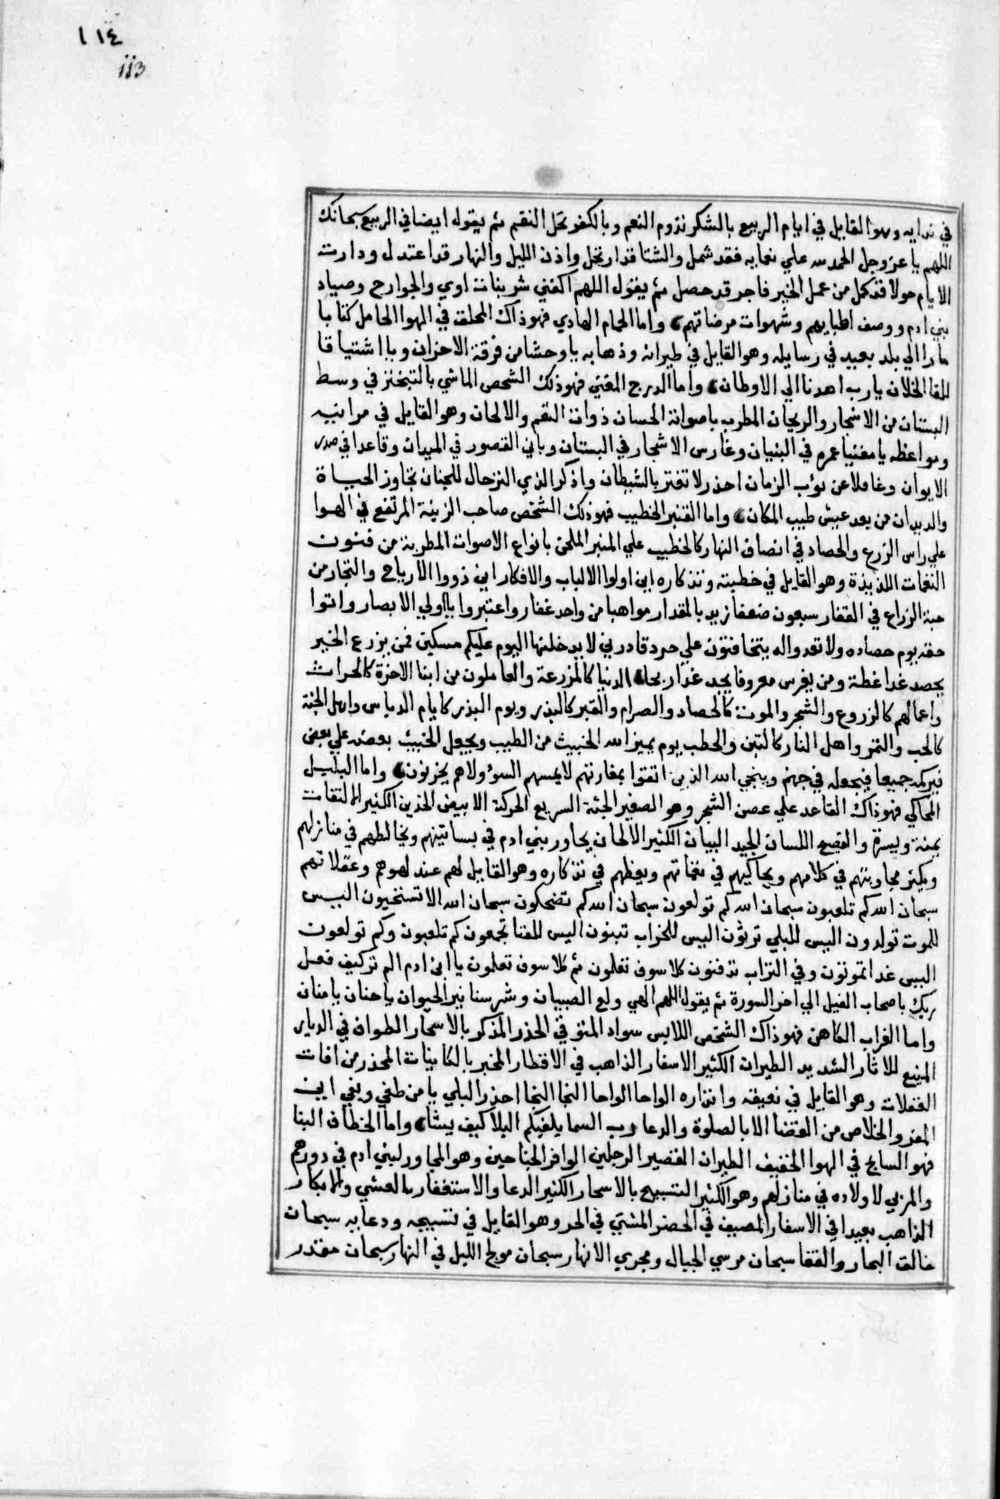 ١١٤
113
في ندايه وهو القايل في ايام الربيع بالشكر تدوم النعم وبالكفر تحل النقم ثم يقول ايضا في الربيع سبحانك
اللهم يا عز وجل الحمد لله علي نعمايه فقد شمل والشتا قد ارتحل واذن الليل والنهار قد اعتدل ودارت
الايام حولا قد كمل من عمل الخير فاجر قد حصل ثم يقول اللهم اكفني شر بنات اوي والجوارح وصياد
بني ادم ووصف اطبايهم وشهوات مرضاتهم واما الحمام الهادي فهو ذاك المحلق في الهوا الحامل كتابا
مارا الي بلد بعيد في رسايله وهو القايل في طيرانه وذهابه يا وحشا من فرقة الاخزان ويا اشتياقا
للقا الخلان يا رب اهدنا الي الاوطان واما الدرج المغني فهو ذلك الشخص الماشي بالتبختر في وسط
البستان من الاشجار والريحان المطرب باصواته الحسان ذوات النغم والالحان وهو القايل في مراثيه
ومواعظه يا مفنيا عمره في البنيان وغارس الاشجار في البستان وباني القصور في الميدان وقاعدا في صدر
الايوان وغافلا عن نوب الزمان احذر لا تغتر بالشيطان واذكر الذي الترحال للجنان تجاوز الحياة
والديدان من بعد عيش طيب المكان واما القنبر الخطيب فهو ذلك الشخص صاحب الزينة المرتفع في الهوا
علي راس الزرع والحصاد في انصاف النهار كالخطيب علي المنبر الملحن بانواع الاصوات المطربة من فنون
النغمات اللذيذة وهو القايل في خطبته وتذكاره اين اولوا الالباب والافكار اين ذووا الارباح والتجار من
حبة الزراع في القفار سبعون ضعفا زيد بالمقدار مواهبا من واحد غفار واعتبروا يا اولي الابصار واتوا
حقه يوم حصاده ولا تغدوا اليه يتخافتون علي حرد قادرين لا يدخلنها اليوم عليكم مسكين فمن يزرع الخير
يحصد غدا غبطة ومن يغرس معروفا يجد غدا ربحا الدنيا كالمزرعة والعاملون من ابنا الاخرة كالحراث
واعمالهم كالزروع والشجر والموت كالحصاد والصرام والقبر كالبيدر ويوم البدر كايام الدياس واهل الجنة
كالحب والثمر واهل النار كالتبن والحطب يوم يميز الله الخبيث من الطيب ويجعل الخبيث بعضه علي بعض
فيركمه جميعا فيجعله في جهنم وينجي الله الذين اتقوا بمفازتهم لا يمسهم السوء ولا هم يحزنون واما البلبل
الحاكي فهو ذاك القاعد علي غصن الشجر وهو الصغير الجثة السريع الحركة الابيض الخدين الكثير الالتفات
يمنة ويسرة والفصيح اللسان الجيد البيان الكثير الالحان يجاور بني ادم في بساتينهم ويخالطهم في منازلهم
ويكثر مجاوبتهم في كلامهم ويحاكيهم في نغماتهم ويعظهم في تذكاره وهو القايل لهم عند لهوهم وغفلاتهم
سبحان الله كم تلعبون سبحان الله كم تولعون سبحان الله كم تضحكون سبحان الله الا تستحيون اليس
للموت تولدون اليس للبلي تربون اليس للخراب تبنون اليس للفنا تجمعون كم تلعبون وكم تولعون
اليس غدا تموتون وفي التراب تدفنون كلا سوف تعلمون ثم كلا سوف تعلمون يا ابن ادم الم تر كيف فعل
ربك باصحاب الفيل الي اخر السورة ثم يقول اللهم الهي ولع الصبيان وشر سنانير الحيوان يا حنان يا منان
واما الغراب الكاهن فهو ذاك الشخص اللابس سواد المتوقي الحذر المذكر بالاسحار المطواف في الديار
المتبع للاثار الشديد الطيران الكثير الاسفار الذاهب في الاقطار المخبر بالكاينات المحذر من افات
الغفلات وهو القايل في نعيقه وانذاره الواحا الواحا النجا النجا احذر البلي يا من طغي وبغي اين
المفر والخلاص من القضا الا بالصلوة والدعا رب السما يكفيكم البلا كيف يشا واما الخطاف البنا
فهو السايح في الهوا الخفيف الطيران القصير الرجلين الوافر الجناحين وهو المجاور لبني ادم في دورهم
والمربي لاولاده في منازلهم وهو الكثير التسبيح بالاسحار الكثير الدعا والاستغفار بالعشي والابكار
الذاهب بعيدا في الاسفار المصيف في الحضر المشتي في الحر وهو القايل في تسبيحه ودعايه سبحان
خالق البحار والقفا سبحان مرسي الجبال ومجري الانهار سبحان مولج الليل في النهار سبحان مقدر